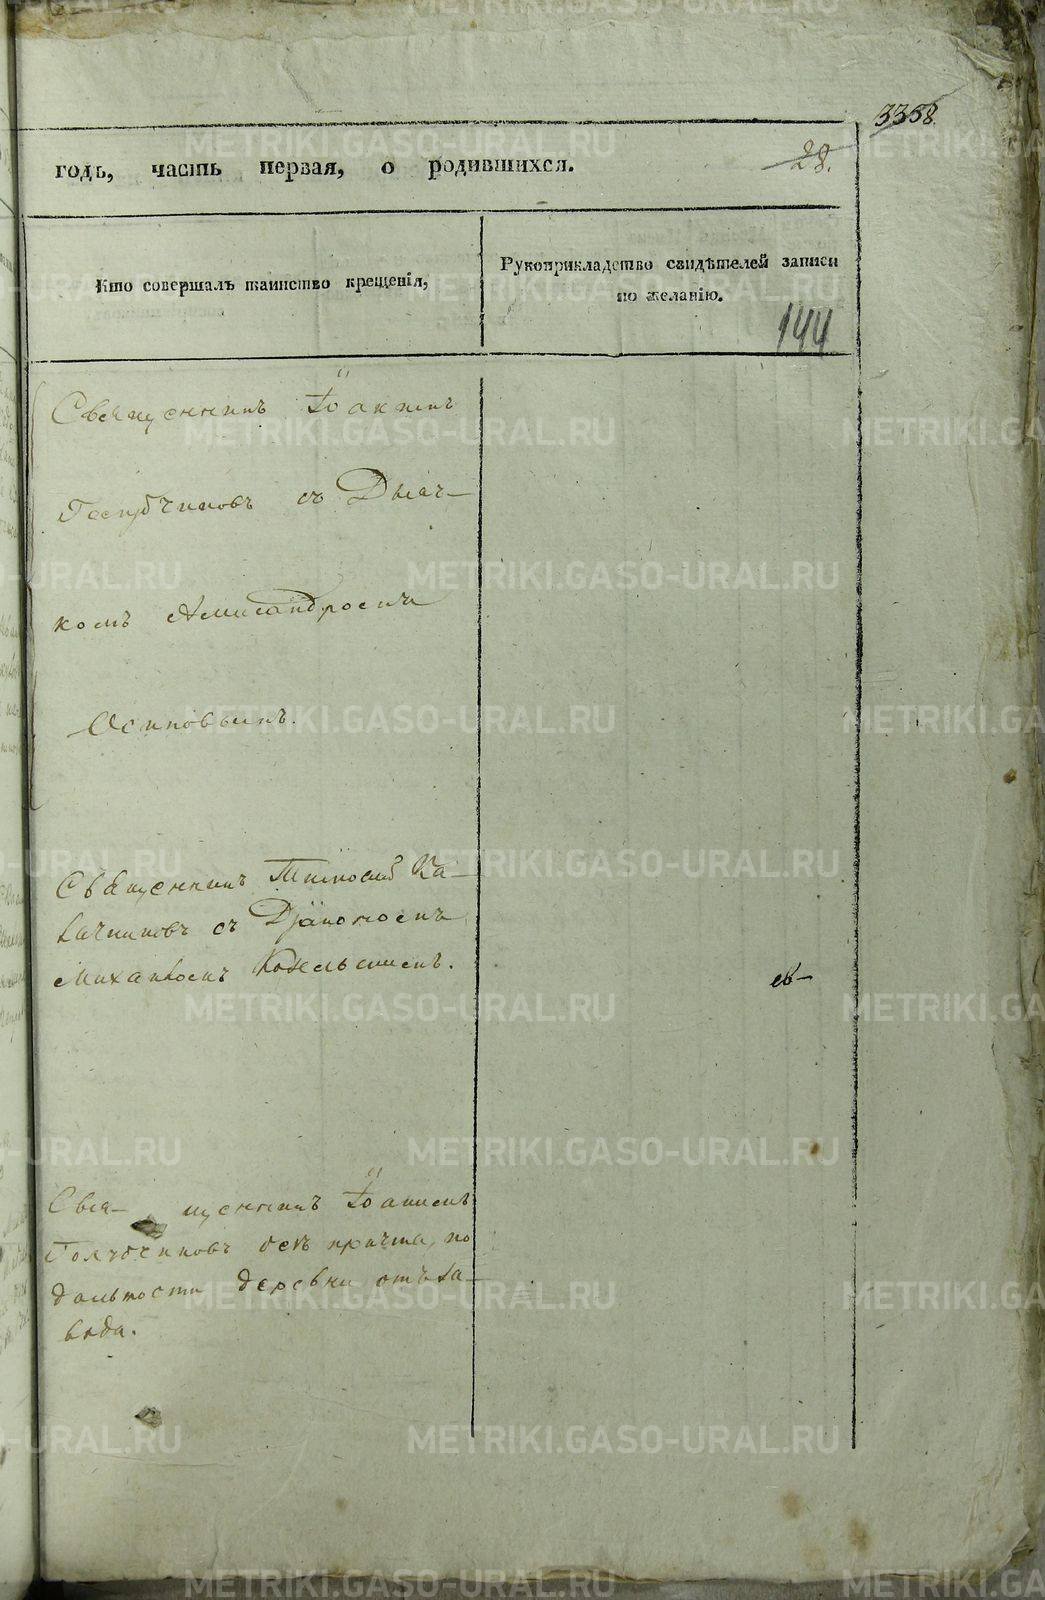 3358
годъ, часть первая, о родившихся.
28.
Кто совершалъ таинство крещенія,
Рукоприкладство свидѣтелей записи
по желанію.
144
Священникъ Іоакимъ
съ Дьяч-
комъ Александромъ
Осиповымъ.
Священникъ Тимофей Ка-
лачниковъ съ Діакономъ
Михаиломъ
Свя- щенникъ Іоакимъ
Голубчиковъ безъ причта, по
дальности деревни отъ за-
вода.
METRIKI.GASO-URAL.RU